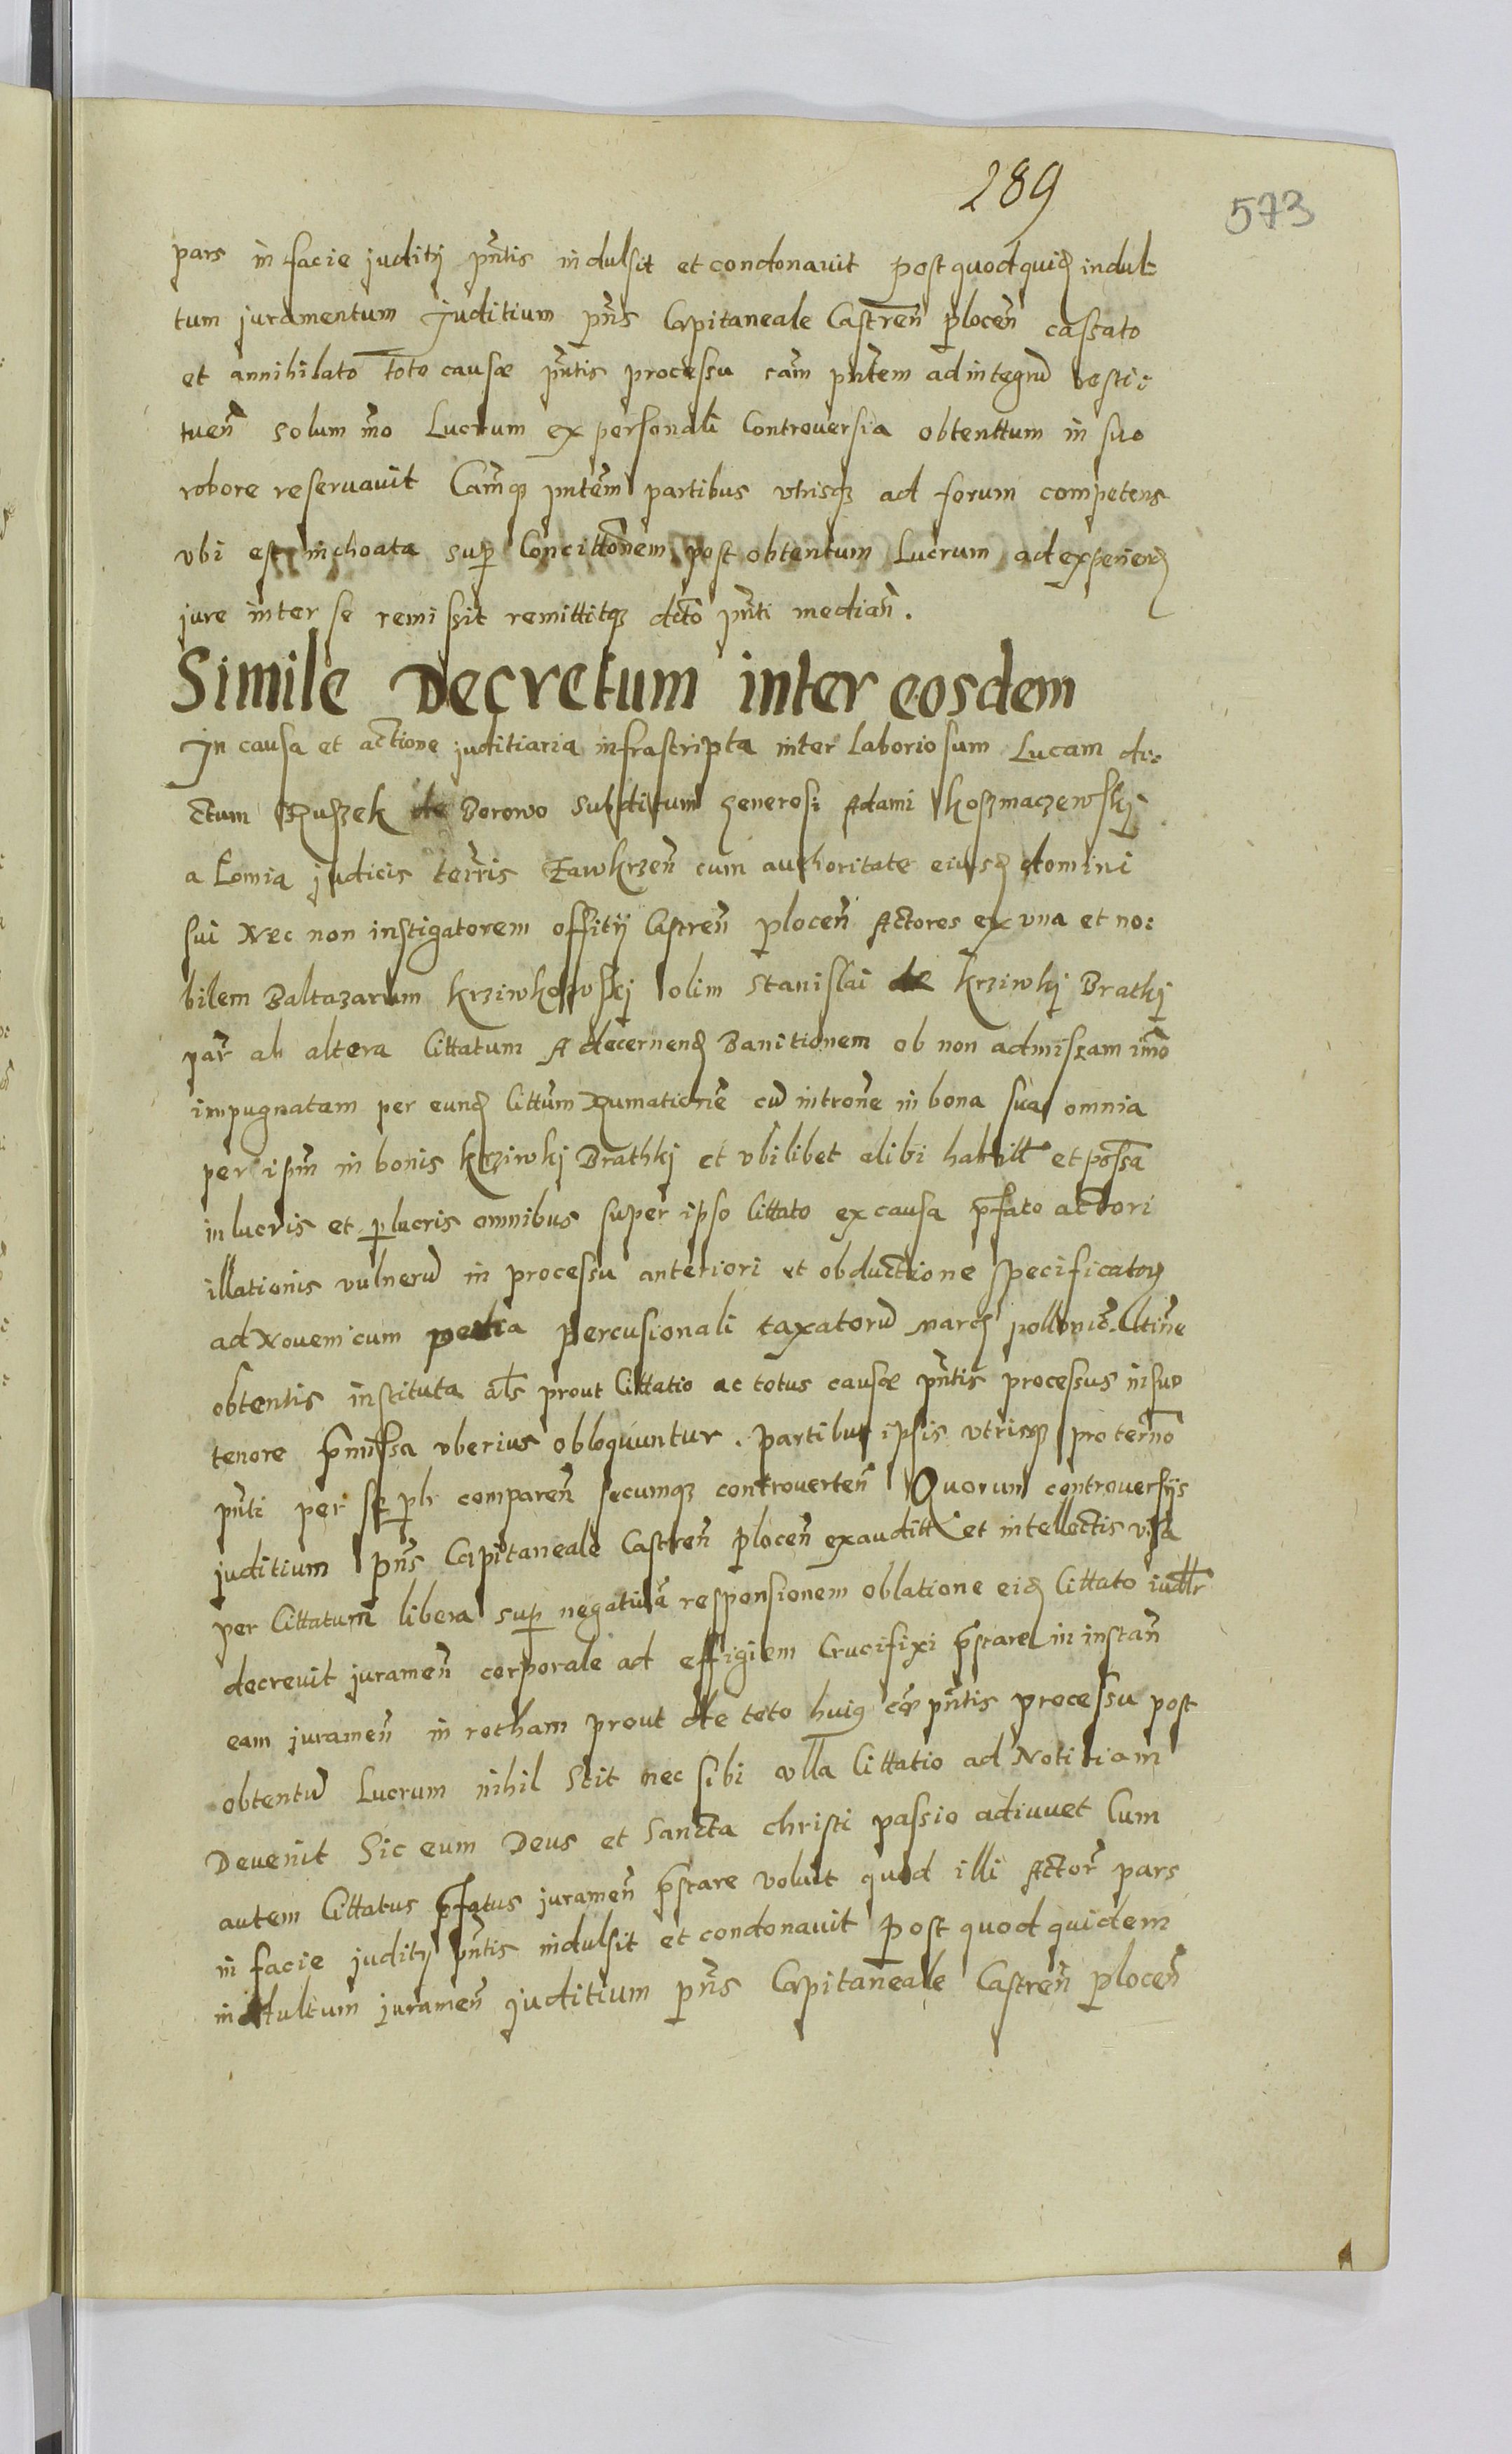 289
573
pars in facie juditij pñtis indulsit et condonauit post quod quid indul=
tum juramentum Juditium pñs Capitaneale Castreñ ploceñ cassato
et annihilato toto causæ pñtis processu cam̃ pñtem ad integrũ resti:
tueñ solum m̃o Lucrum ex personali Controuersia obtenttum in suo
robore reseruauit Cam̃q pñtem partibus vtrisq ad forum competens
vbi est inchoata sup Concitt̃onem post obtentum Lucrum ad experiend
jure inter se remissit remittitq dct̃o pñti mediañ.
Simile Decretum inter eosdem
In causa et actione juditiaria infrascripta inter laboriosum Lucam di:
ctum de Borowo subditum generosi Adami Koszmaczewskj
a Łomia judicis terr̃is Zawkrzeñ cum authoritate eiusd domini
sui Nec non instigatorem offitij Castreñ ploceñ Actores ex vna et no:
bilem Baltazarum Krziwkowskj olim Stanislai de Krziwkj Bratkj
par̃ ab altera Cittatum A decernend Banitionem ob non admissam im̃o
impugnatam per eund Citt̃um Rumationẽ cũ intron̈e in bona sua omnia
per ipm̃ in bonis Krziwkj Brathkj et vbilibet alibi habitt et possa
in lucris et perlucris omnibus super ipso Cittato ex causa p̃fato actori
illationis vulnerũ in processu anteriori et obductione specificator
ad Nouem cum percusionali taxatorũ March pollonic̃.
obtentis instituta als prout Cittatio ac totus causæ pñtis processus in suo
tenore p̃missa vberius obloquuntur. partibus ipsis vtrisq pro ter̃mo
pñti per se plr comparẽn secumq controuerteñ Quorum controuersijs
juditium pñs Capitaneale Castreñ plocen̄ exauditt et intellectis visa
per Cittatum libera sup negatiuã responsionem oblatione eid Cittato
decreuit jurameñ corporale ad effigiem Crucifixi p̃stare in instañ
eam jurameñ in rotham prout de toto huiq cæ pñtis processu post
obtentũ Lucrum nihil Scit nec sibi vlla Cittatio ad Notitiam
Deuenit Sic eum Deus et Sancta christi passio adiuuet Cum
autem Cittatus p̃fatus jurameñ p̃stare voluit quod illi Actor̃ pars
in facie juditij pñtis indulsit et condonauit post quod quidem
indultum jurameñ juditium pñs Capitaneale Castreñ plocen̄